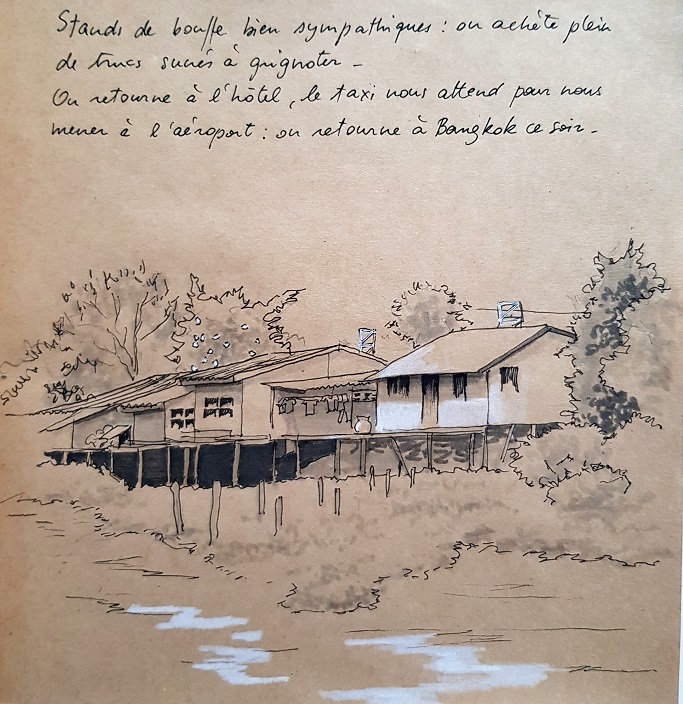 Stands de bouffe bien sympathiques : on achète plein
de trucs sucrés à grignoter -
On retourne à l'hôtel, le taxi nous attend pour nous
mener à l'aéroport : on retourne à Bangkok ce soir -